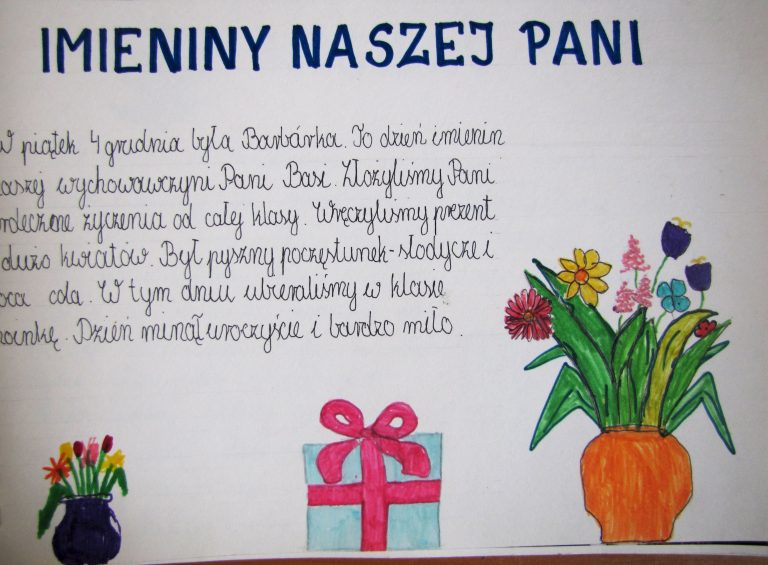 IMIENINY NASZEJ PANI
W piątek 4 grudnia była Barbárka. To dzień imienin
aszej wychowawczyni Pani Basi. Złożyliśmy Pani
erdeczne życzenia od całej klasy. Wręczyliśmy prezent
dużo kwiatów. Był pyszny poczęstunek - słodycze i
oca cola. W tym dniu ubieraliśmy w klasie
oinkę. Dzień minął uroczyście i bardzo miło.